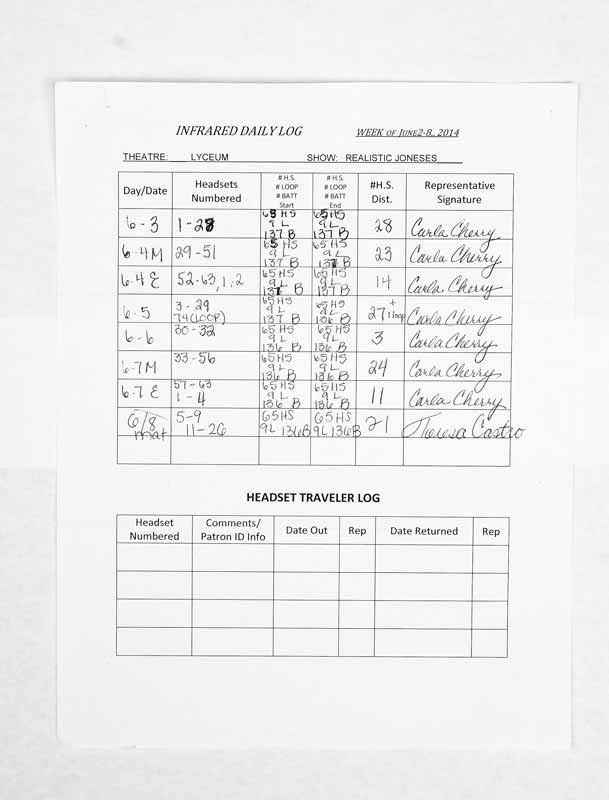 INFRARED DAILY LOG WEEK OF JUNE2-8, 2014
THEATRE: LYCEUM SHOW: REALISTIC JONESES
Day/Date
Headsets
Numbered
# H.S.
# LOOP
# BATT
Start
# H.S.
# LOOP
# BATT
End
#H.S.
Dist.
Representative
Signature
6-3 1-28 65 HS 9 L 137 B 65 HS 9 L 137 B 28 Carla Cherry
6-4M 29-51 65 HS 9L 137 B 65 HS 9L 137 B 23 Carla Cherry
6-4 E 52-63, 1, 2 65 HS 9L 137 B 65 HS 9L 137 B 14 Carla Cherry
6-5 3-29 74(LOOP) 65 HS 9 L 137 B 65 HS 9L 136 B 27 + 1 loop Carla Cherry
6-6 30-32 65 HS 9L 136 B 65 HS 9L 136 B 3 Carla Cherry
6-7M 33-56 65 HS 9L 136 B 65 HS 9L 136 B 24 Carla Cherry
6-7 E 57-63 1-4 65 HS 9L 136 B 65 HS 9L 136 B 11 Carla Cherry
6/8 mat 5-9 11-26 65HS 9L 136B 65HS 9L 136B 21 Theresa Castro
HEADSET TRAVELER LOG
Headset
Numbered
Comments/
Patron ID Info
Date Out
Rep
Date Returned
Rep